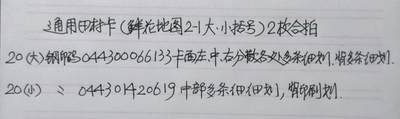 通用田村卡(鲜花地图2-1大·小括号)2枚合拍
20(大)钢印码044300066133卡面左.中.右分散各多条细划.背多条细划.
20(小) 〃 044301420619中部多条细细划,背印刷划.